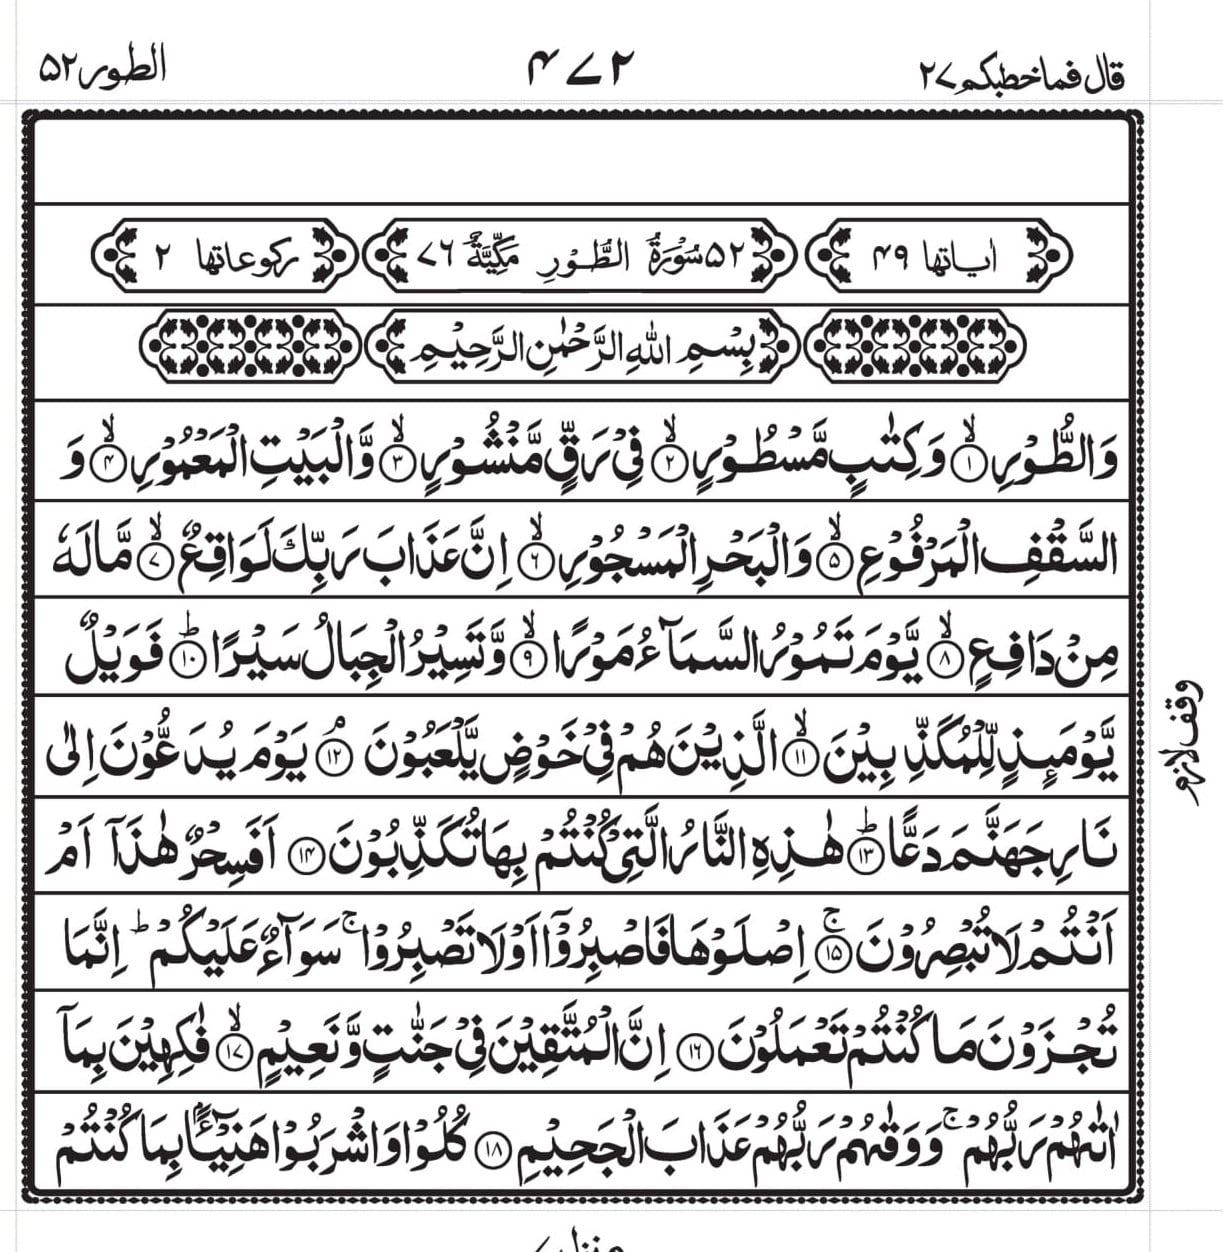 قال فما خطبكم ۲۷
۴۷۲
الطور ۵۲
اٰیاتها ۴۹
۵۲ سُوْرَةُ الطُّوْرِ مَكِّيَّةٌ ۷۶
ركوعاتها ۲
بِسْمِ اللهِ الرَّحْمٰنِ الرَّحِيْمِ
وَالطُّوْرِ ۙ﴿۱﴾ وَكِتٰبٍ مَّسْطُوْرٍ ۙ﴿۲﴾ فِيْ رَقٍّ مَّنْشُوْرٍ ۙ﴿۳﴾ وَّالْبَيْتِ الْمَعْمُوْرِ ۙ﴿۴﴾ وَ
السَّقْفِ الْمَرْفُوْعِ ۙ﴿۵﴾ وَالْبَحْرِ الْمَسْجُوْرِ ۙ﴿۶﴾ اِنَّ عَذَابَ رَبِّكَ لَوَاقِعٌ ۙ﴿۷﴾ مَّا لَهٗ
مِنْ دَافِعٍ ۙ﴿۸﴾ يَّوْمَ تَمُوْرُ السَّمَآءُ مَوْرًا ۙ﴿۹﴾ وَّتَسِيْرُ الْجِبَالُ سَيْرًا ؕ﴿۱۰﴾ فَوَيْلٌ
يَّوْمَئِذٍ لِّلْمُكَذِّبِيْنَ ۙ﴿۱۱﴾ الَّذِيْنَ هُمْ فِيْ خَوْضٍ يَّلْعَبُوْنَ ۘ﴿۱۲﴾ يَوْمَ يُدَعُّوْنَ اِلٰى
نَارِ جَهَنَّمَ دَعًّا ؕ﴿۱۳﴾ هٰذِهِ النَّارُ الَّتِيْ كُنْتُمْ بِهَا تُكَذِّبُوْنَ ﴿۱۴﴾ اَفَسِحْرٌ هٰذَاۤ اَمْ
اَنْتُمْ لَا تُبْصِرُوْنَ ۚ﴿۱۵﴾ اِصْلَوْهَا فَاصْبِرُوْۤا اَوْ لَا تَصْبِرُوْا ۚ سَوَآءٌ عَلَيْكُمْ ؕ اِنَّمَا
تُجْزَوْنَ مَا كُنْتُمْ تَعْمَلُوْنَ ﴿۱۶﴾ اِنَّ الْمُتَّقِيْنَ فِيْ جَنّٰتٍ وَّنَعِيْمٍ ۙ﴿۱۷﴾ فٰكِهِيْنَ بِمَاۤ
اٰتٰهُمْ رَبُّهُمْ ۚ وَوَقٰهُمْ رَبُّهُمْ عَذَابَ الْجَحِيْمِ ﴿۱۸﴾ كُلُوْا وَاشْرَبُوْا هَنِيْٓئًۢا بِمَا كُنْتُمْ
وقف لازم
منزل ۷